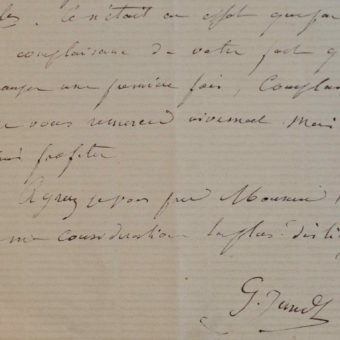 les. Ce n'était en effet que par
complaisance de votre part q
anger une première fois, Complai
e vous remercie vivement, mais
profiter.
Agréez je vous prie Monsieur
ma considération la plus disti
G. Jundt